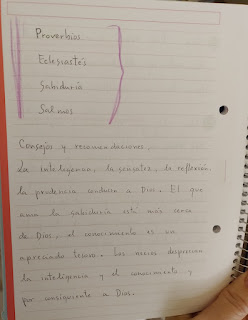 Proverbios
Eclesiastés
Sabiduría
Salmos
Consejos y recomendaciones.
La inteligencia, la sensatez, la reflexión,
la prudencia conducen a Dios. El que
ama la sabiduría está más cerca
de Dios, el conocimiento es un
apreciado tesoro. Los necios desprecian
la inteligencia y el conocimiento y
por consiguiente a Dios.